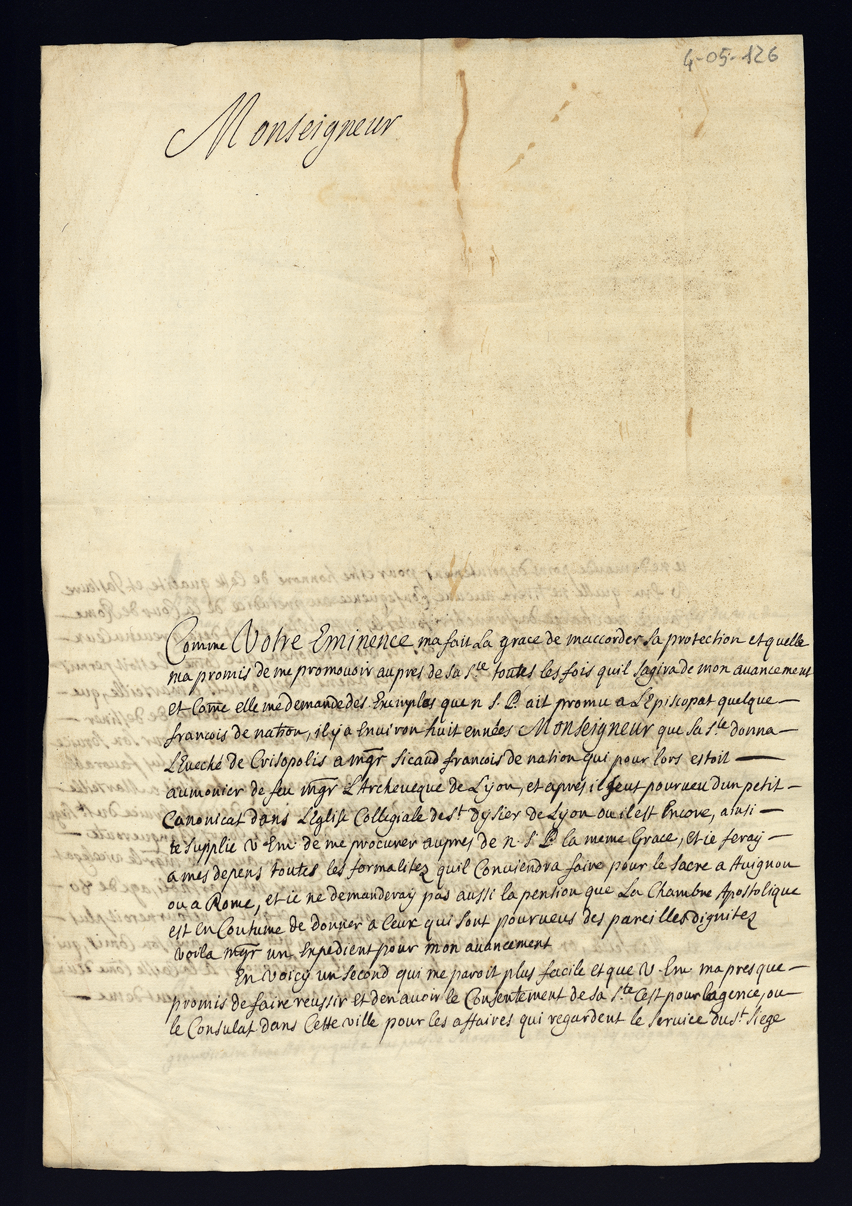 4-05-126
Monseigneur
Comme Votre Eminence ma fait La grace de maccorder sa protection et quelle
ma promis de me promouvoir aupres de sa Ste toutes les fois quil sagira de mon avancement
et Come elle me demande des Exemples que n. S. P. ait promu a L'Episcopat quelque
francois de nation, il y a Environ huit ennées Monseigneur que sa Ste donna
L'Eveché de Crisopolis a mgr Sicaud francois de nation qui pour lors estoit
aumonier de feu mgr L'Archeveque de Lyon, et apres il feut pourveu dun petit
Canonicat dans L'Eglise Collegiale de St Dysier de Lyon ou il est Encore, ainsi
te supplie V Em. de me procurer aupres de n. S. P. la meme Grace, et ie feray
a mes depens toutes les formalitez quil Conviendra faire pour le sacre a Avignon
ou a Rome, et ie ne demanderay pas aussi la pention que La Chambre Apostolique
est en Coutume de donner a Ceux qui sont pourveus des pareilles dignitez
voila mgr un Expedient pour mon avancement
En voicy un second qui me paroit plus facile et que V. Em. ma presque
promis de faire reussir et den avoir le Consentement de sa Ste Cest pour lagence, ou
le Consulat dans Cette ville pour les affaires qui regardent le service du St Siege